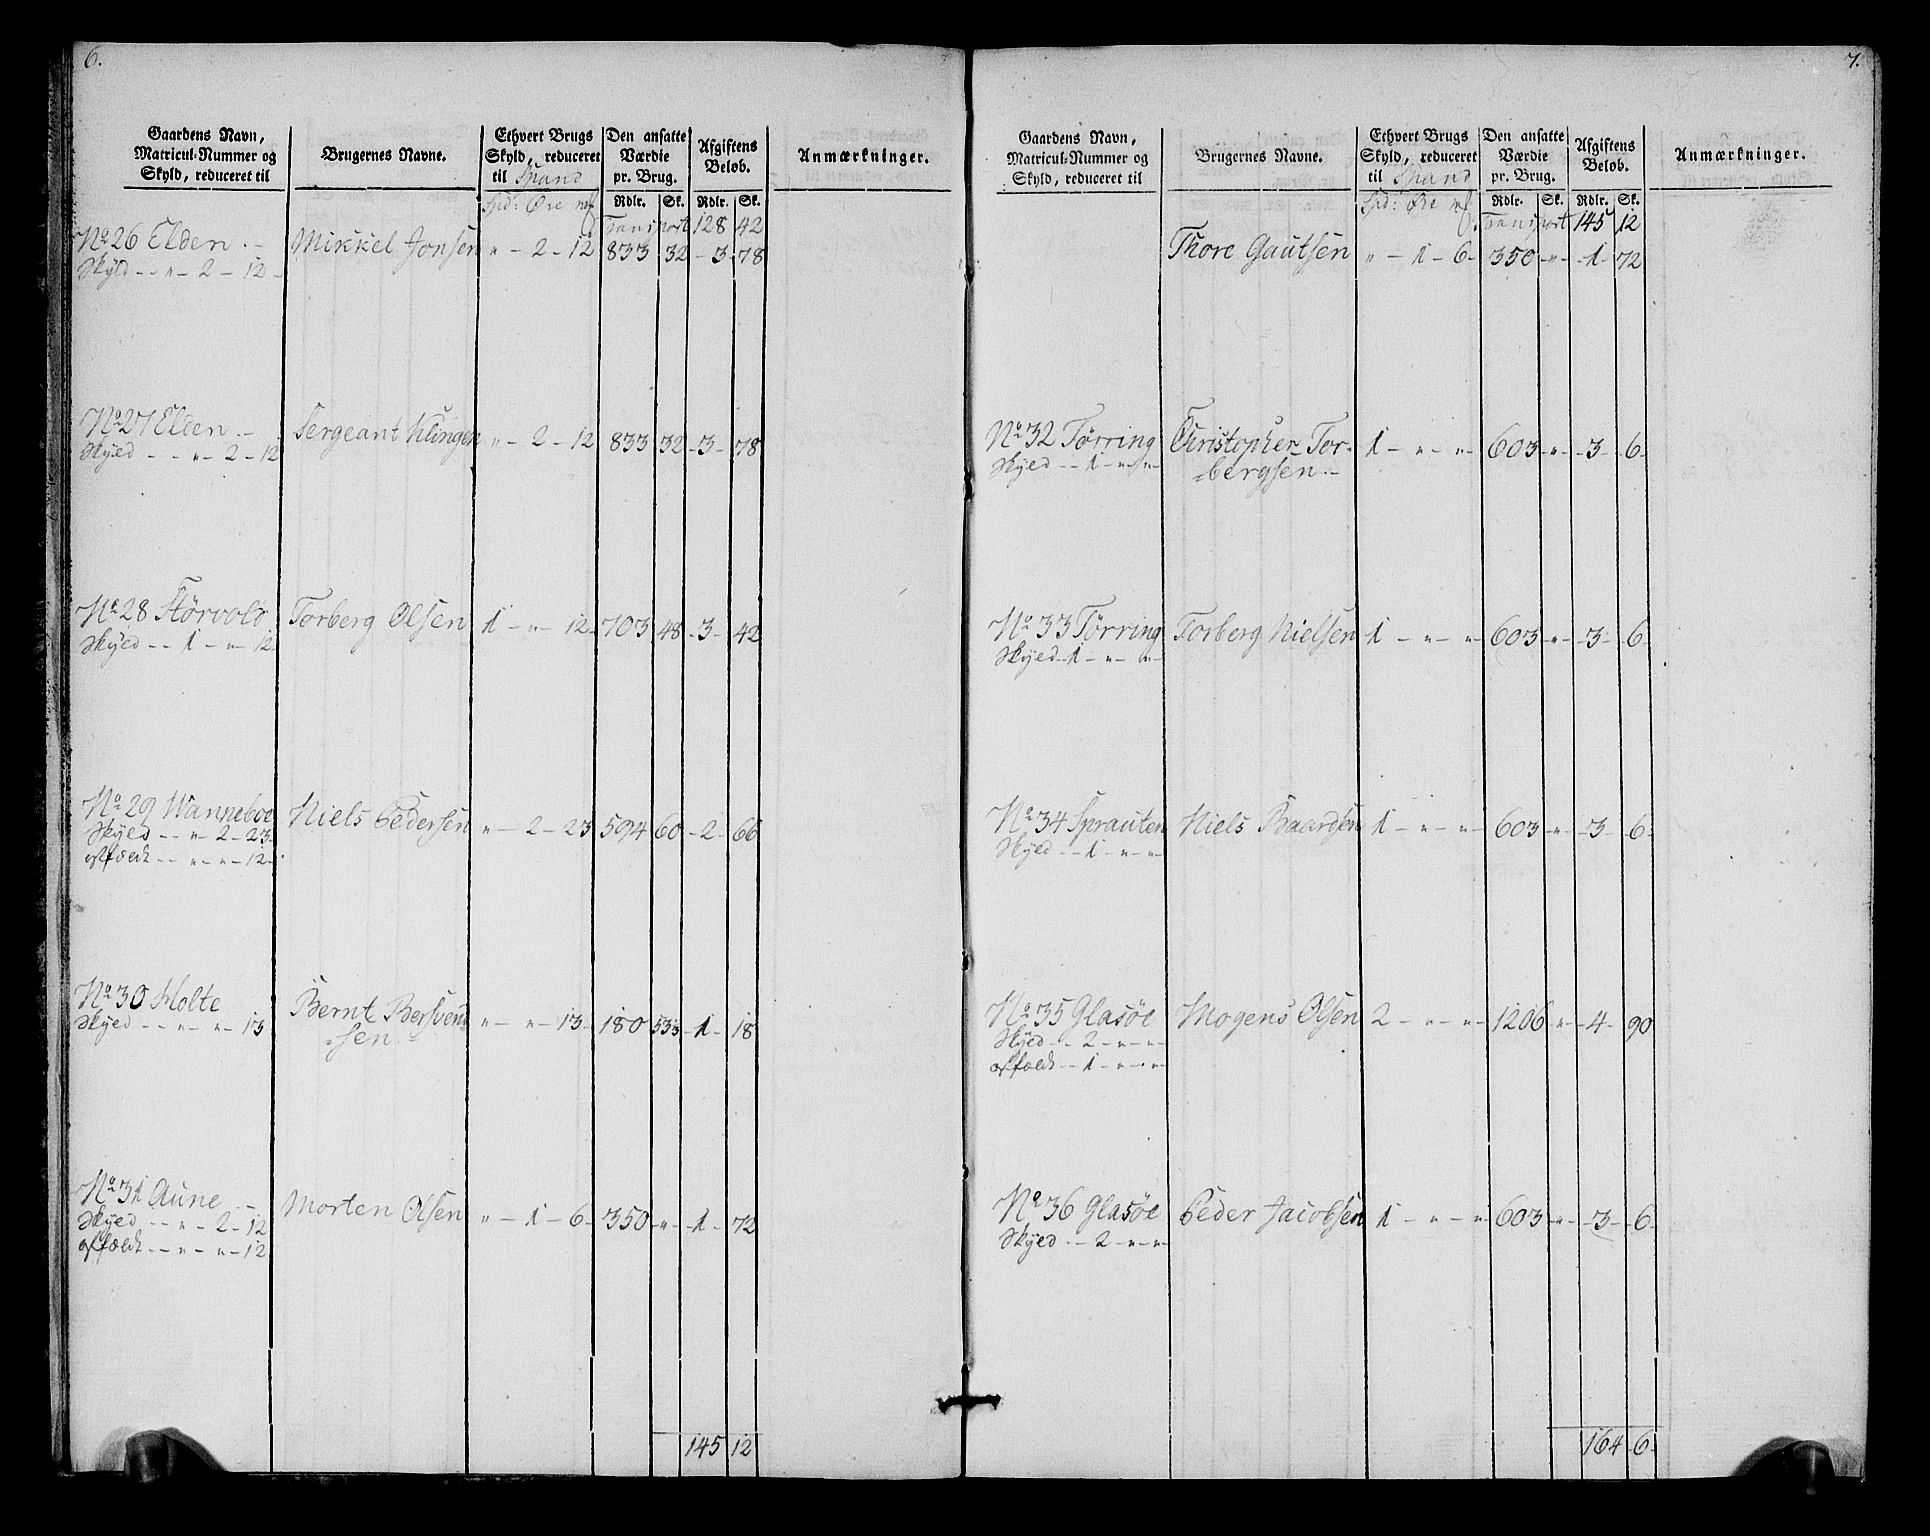 6.
Gaardens Navn, Matricul-Nummer og Skyld, reduceret til
Brugernes Navne.
Ethvert Brugs Skyld, reduceret til Spand
Den ansatte Værdie pr. Brug.
Afgiftens Beløb.
Anmærkninger.
Spd: Øre mk Rdlr. Sk. Rdlr. Sk.
Transport 128 42
No 26 Elden.- Mikkel Jonsen " - 2 - 12 833 32 - 3 - 78
Skyld - - " - 2 - 12 -
No 27 Elden.- Sergeant Klingen " - 2 - 12 833 32 - 3 - 78
Skyld - - " - 2 - 12
No 28 Størvold Torberg Olsen 1 - " - 12 - 703 48 - 3 - 42
Skyld - - 1 - " - 12 -
No 29 Wanneboe Niels Pedersen " - 2 - 23 594 60 - 2 - 66
Skyld - - " - 2 - 23 -
affældt - - " - " - 12 -
No 30 Holte Bernt Bersvend " - " - 13 - 180 53 - 1 - 18
Skyld - - " - " - 13 =sen.-
No 31 Aune - Morten Olsen " - 1 - 6 - 350 - " - 1 - 72
Skyld - - " - 2 - 12
affældt - - " - " - 12
145 12
7.
Gaardens Navn, Matricul-Nummer og Skyld, reduceret til
Brugernes Navne.
Ethvert Brugs Skyld, reduceret til Spand
Den ansatte Værdie pr. Brug.
Afgiftens Beløb.
Anmærkninger.
Spd: Øre mk Rdlr. Sk. Rdlr. Sk.
Transport 145 12
Thore Gautsen " - 1 - 6 - 350 - " - 1 - 72
No 32 Tørring Christopher Tor- 1 - " - " - 603 - " - 3 - 6 -
Skyld - - 1 - " - " =bergsen.-
No 33 Tørring Torberg Nielsen 1 - " - " 603 - " - 3 - 6 -
Skyld - 1 - " - " -
No 34 Sprauten Niels Baardsen 1 - " - " - 603 - " - 3 - 6 -
Skyld - - 1 - " - "
No 35 Glasøe Mogens Olsen 2 - " - " - 1206 - " - 4 - 90
Skyld - - 2 - " - " -
affældt - - 1 - " - " -
No 36 Glasøe Peder Jacobsen 1 - " - " 603 - " - 3 - 6 -
Skyld - - 2 - " - " -
164 - 6 -